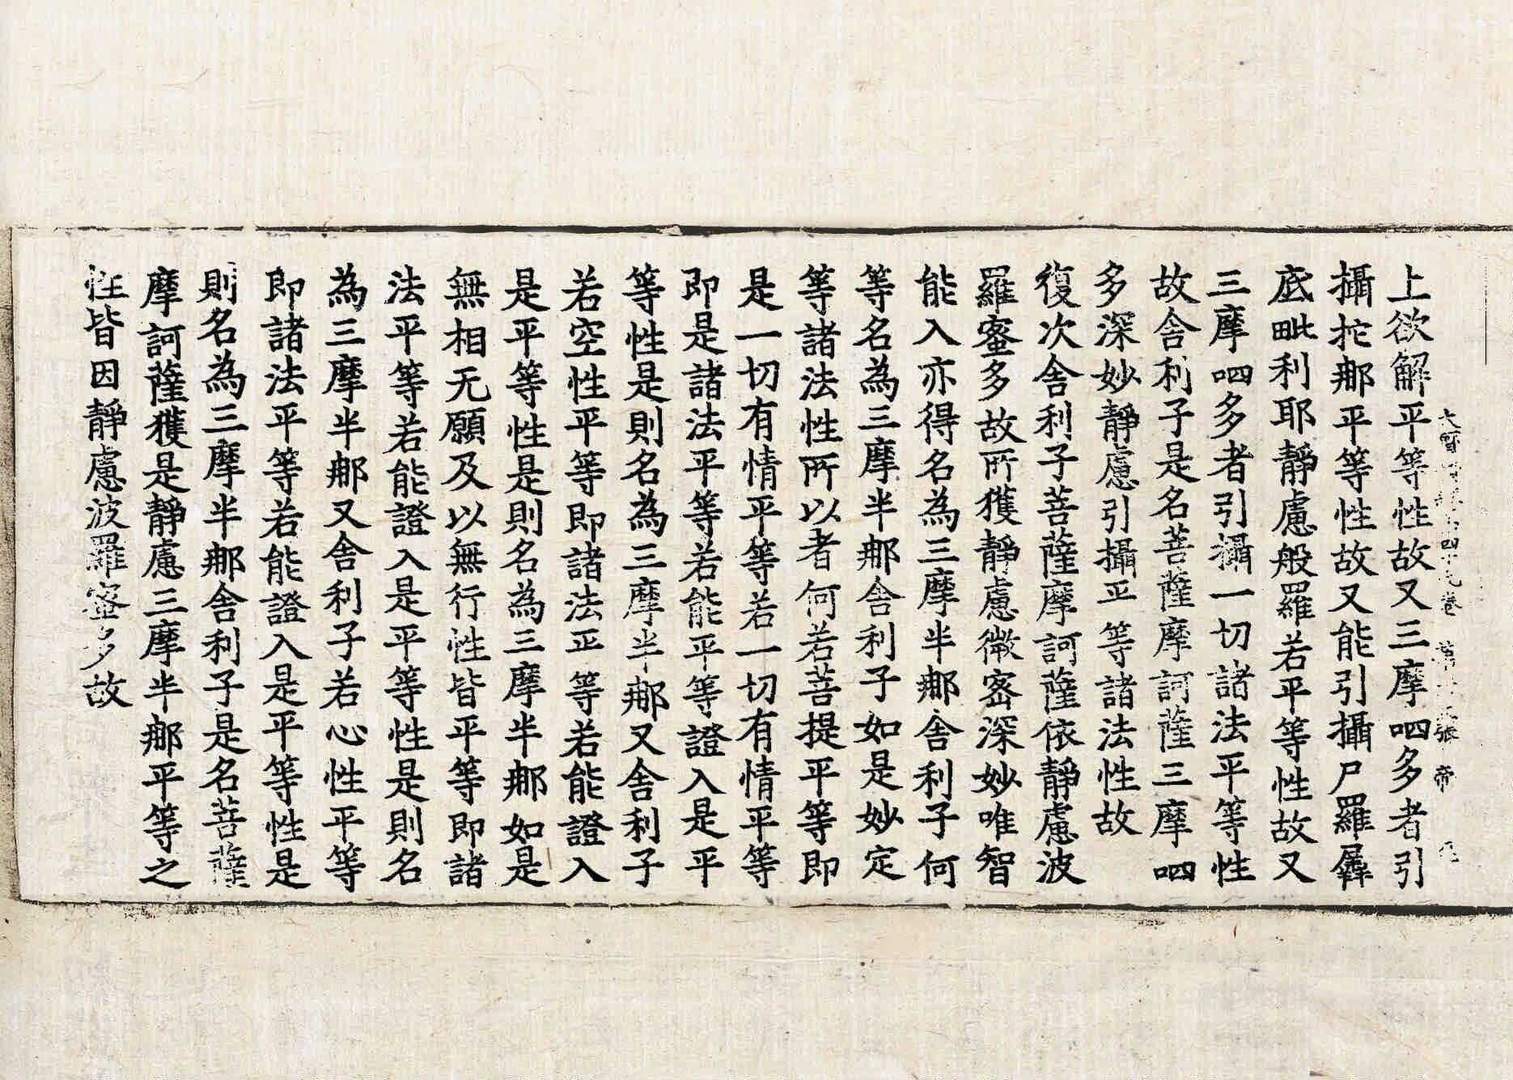 上欲解平等性故又三摩呬多者引
攝拕那平等性故又能引攝尸羅羼
底毗利耶靜慮般羅若平等性故又
三摩呬多者引攝一切諸法平等性
故舍利子是名菩薩摩訶薩三摩呬
多深妙靜慮引攝平等諸法性故
復次舍利子菩薩摩訶薩依靜慮波
羅蜜多故所獲靜慮微密深妙唯智
能入亦得名為三摩半那舍利子何
等名為三摩半那舍利子如是妙定
等諸法性所以者何若菩提平等即
是一切有情平等若一切有情平等
即是諸法平等若能平等證入是平
等性是則名為三摩半那又舍利子
若空性平等即諸法平等若能證入
是平等性是則名為三摩半那如是
無相无願及以無行性皆平等即諸
法平等若能證入是平等性是則名
為三摩半那又舍利子若心性平等
即諸法平等若能證入是平等性是
則名為三摩半那舍利子是名菩薩
摩訶薩獲是靜慮三摩半那平等之
性皆因靜慮波羅蜜多故
大寶 四十 卷 第 張 帝